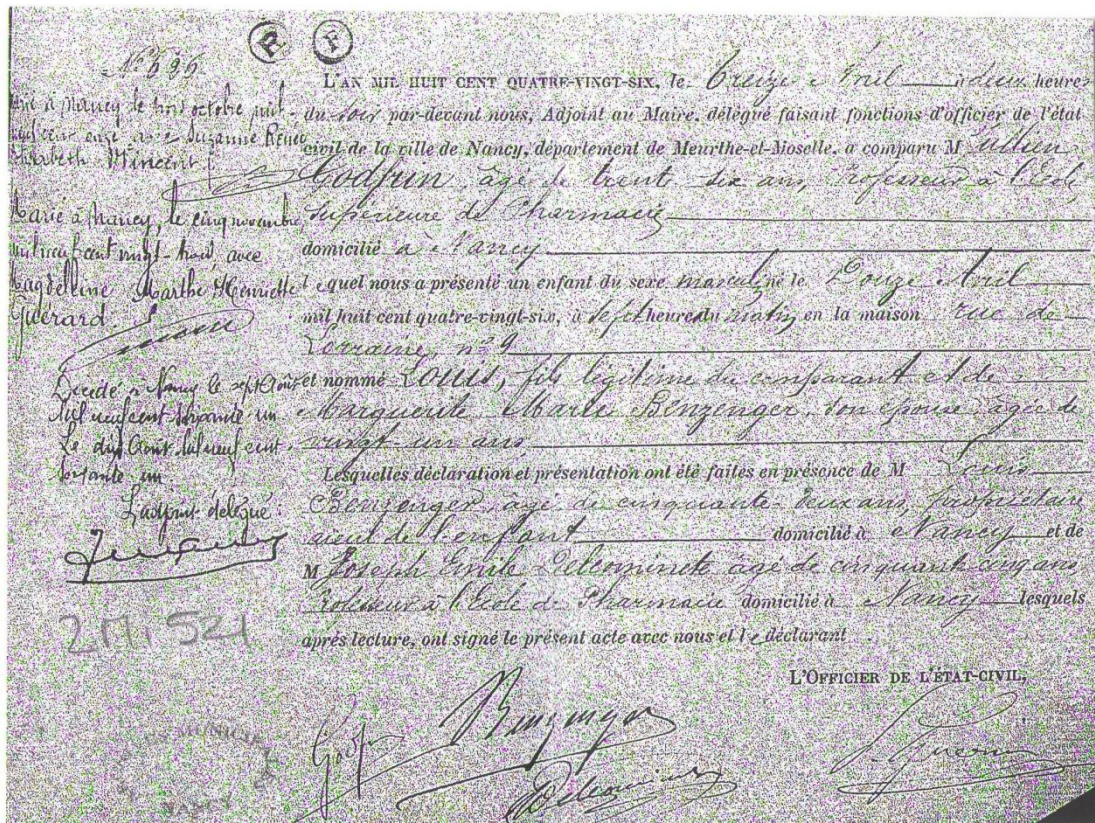 N° 596
Marié à Nancy le trois octobre mil
neuf cent onze avec Suzanne Renée
Elisabeth Vincent
Marié à Nancy, le cinq novembre
mil neuf cent vingt-trois, avec
Magdelline Marthe Henriette
Guérard.
Décédé à Nancy le sept Août
Mil neuf cent soixante un
Le dix Août mil neuf cent
soixante un.
L'adjoint délégué:
2 Mi 521
L'AN MIL HUIT CENT QUATRE-VINGT-SIX, le treize Avril à deux heures
du soir par-devant nous, Adjoint au Maire, délégué faisant fonctions d'officier de l'état
civil de la ville de Nancy, département de Meurthe-et-Moselle, a comparu M Julien
Godfrin âgé de trente six ans, Professeur à l'École
supérieure de Pharmacie
domicilié à Nancy
lequel nous a présenté un enfant du sexe masculin né le Douze Avril
mil huit cent quatre-vingt-six, à sept heures du matin en la maison rue de
Lorraine, n° 9
et nommé LOUIS, fils légitime du comparant et de
Marguerite Marie Benzenger, son épouse âgée de
vingt-un ans,
Lesquelles déclaration et présentation ont été faites en présence de M Louis
Benzenger, âgé de cinquante-deux ans, propriétaire
aïeul de l'enfant domicilié à Nancy et de
M Joseph Emile Delcominete âgé de cinquante cinq ans
Professeur à l'École de Pharmacie domicilié à Nancy lesquels
après lecture, ont signé le présent acte avec nous et le déclarant
L'OFFICIER DE L'ÉTAT-CIVIL,
NANCY